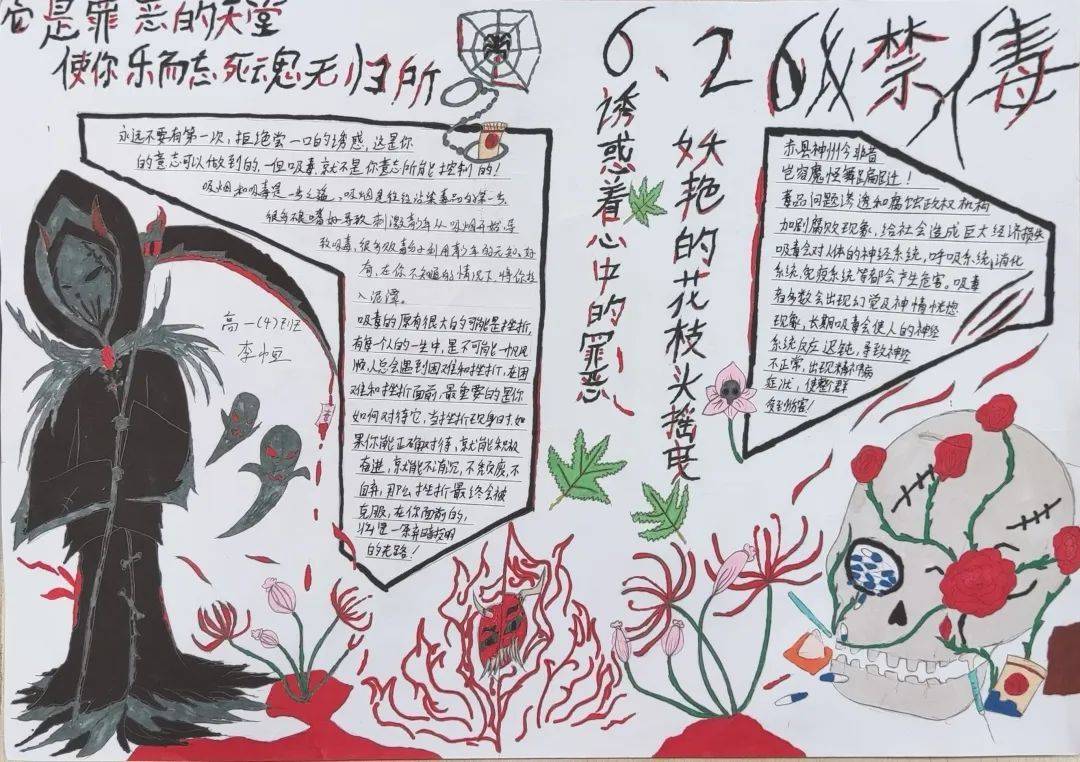 它是罪恶的天堂
使你乐而忘死魂无归所
6、26 禁毒
诱惑着心中的罪恶
妖艳的花枝头摇曳
永远不要有第一次,拒绝尝一口的诱惑,这是你
的意志可以做到的,但吸毒,就不是你意志所能控制的!
吸烟和吸毒是一步之遥,吸烟是往往沾染毒品的第一步,
很多不良嗜好导致刺激青少年从吸烟开始,导
致吸毒,很多贩毒的利用青少年的无知,好
奇,在你不知道的情况下,将你拉
入泥潭。
吸毒的原有很大的可能是挫折,
在每个人的一生中,是不可能一帆风
顺,人总会遇到困难和挫折,在困
难和挫折面前,最重要的是你
如何对待它,当挫折现身时,如
果你能正确对待,就能积极
奋进,就能不消沉,不颓废,不
自弃,那么挫折最终会被
克服,在你面前的,
将是一条奔向光明
的老路!
高一(4)班
李恒
赤县神州今非昔
岂容魔怪舞蹁跹!
毒品问题渗透和腐蚀政权机构
加剧腐败现象,给社会造成巨大经济损失
吸毒会对人体的神经系统,呼吸系统,消化
系统,免疫系统等都会产生危害。吸毒
者多数会出现幻觉及神情恍惚
现象,长期吸毒会使人的神经
系统反应迟钝,导致神经
不正常,出现精神病
症状,使整个群
受到伤害!